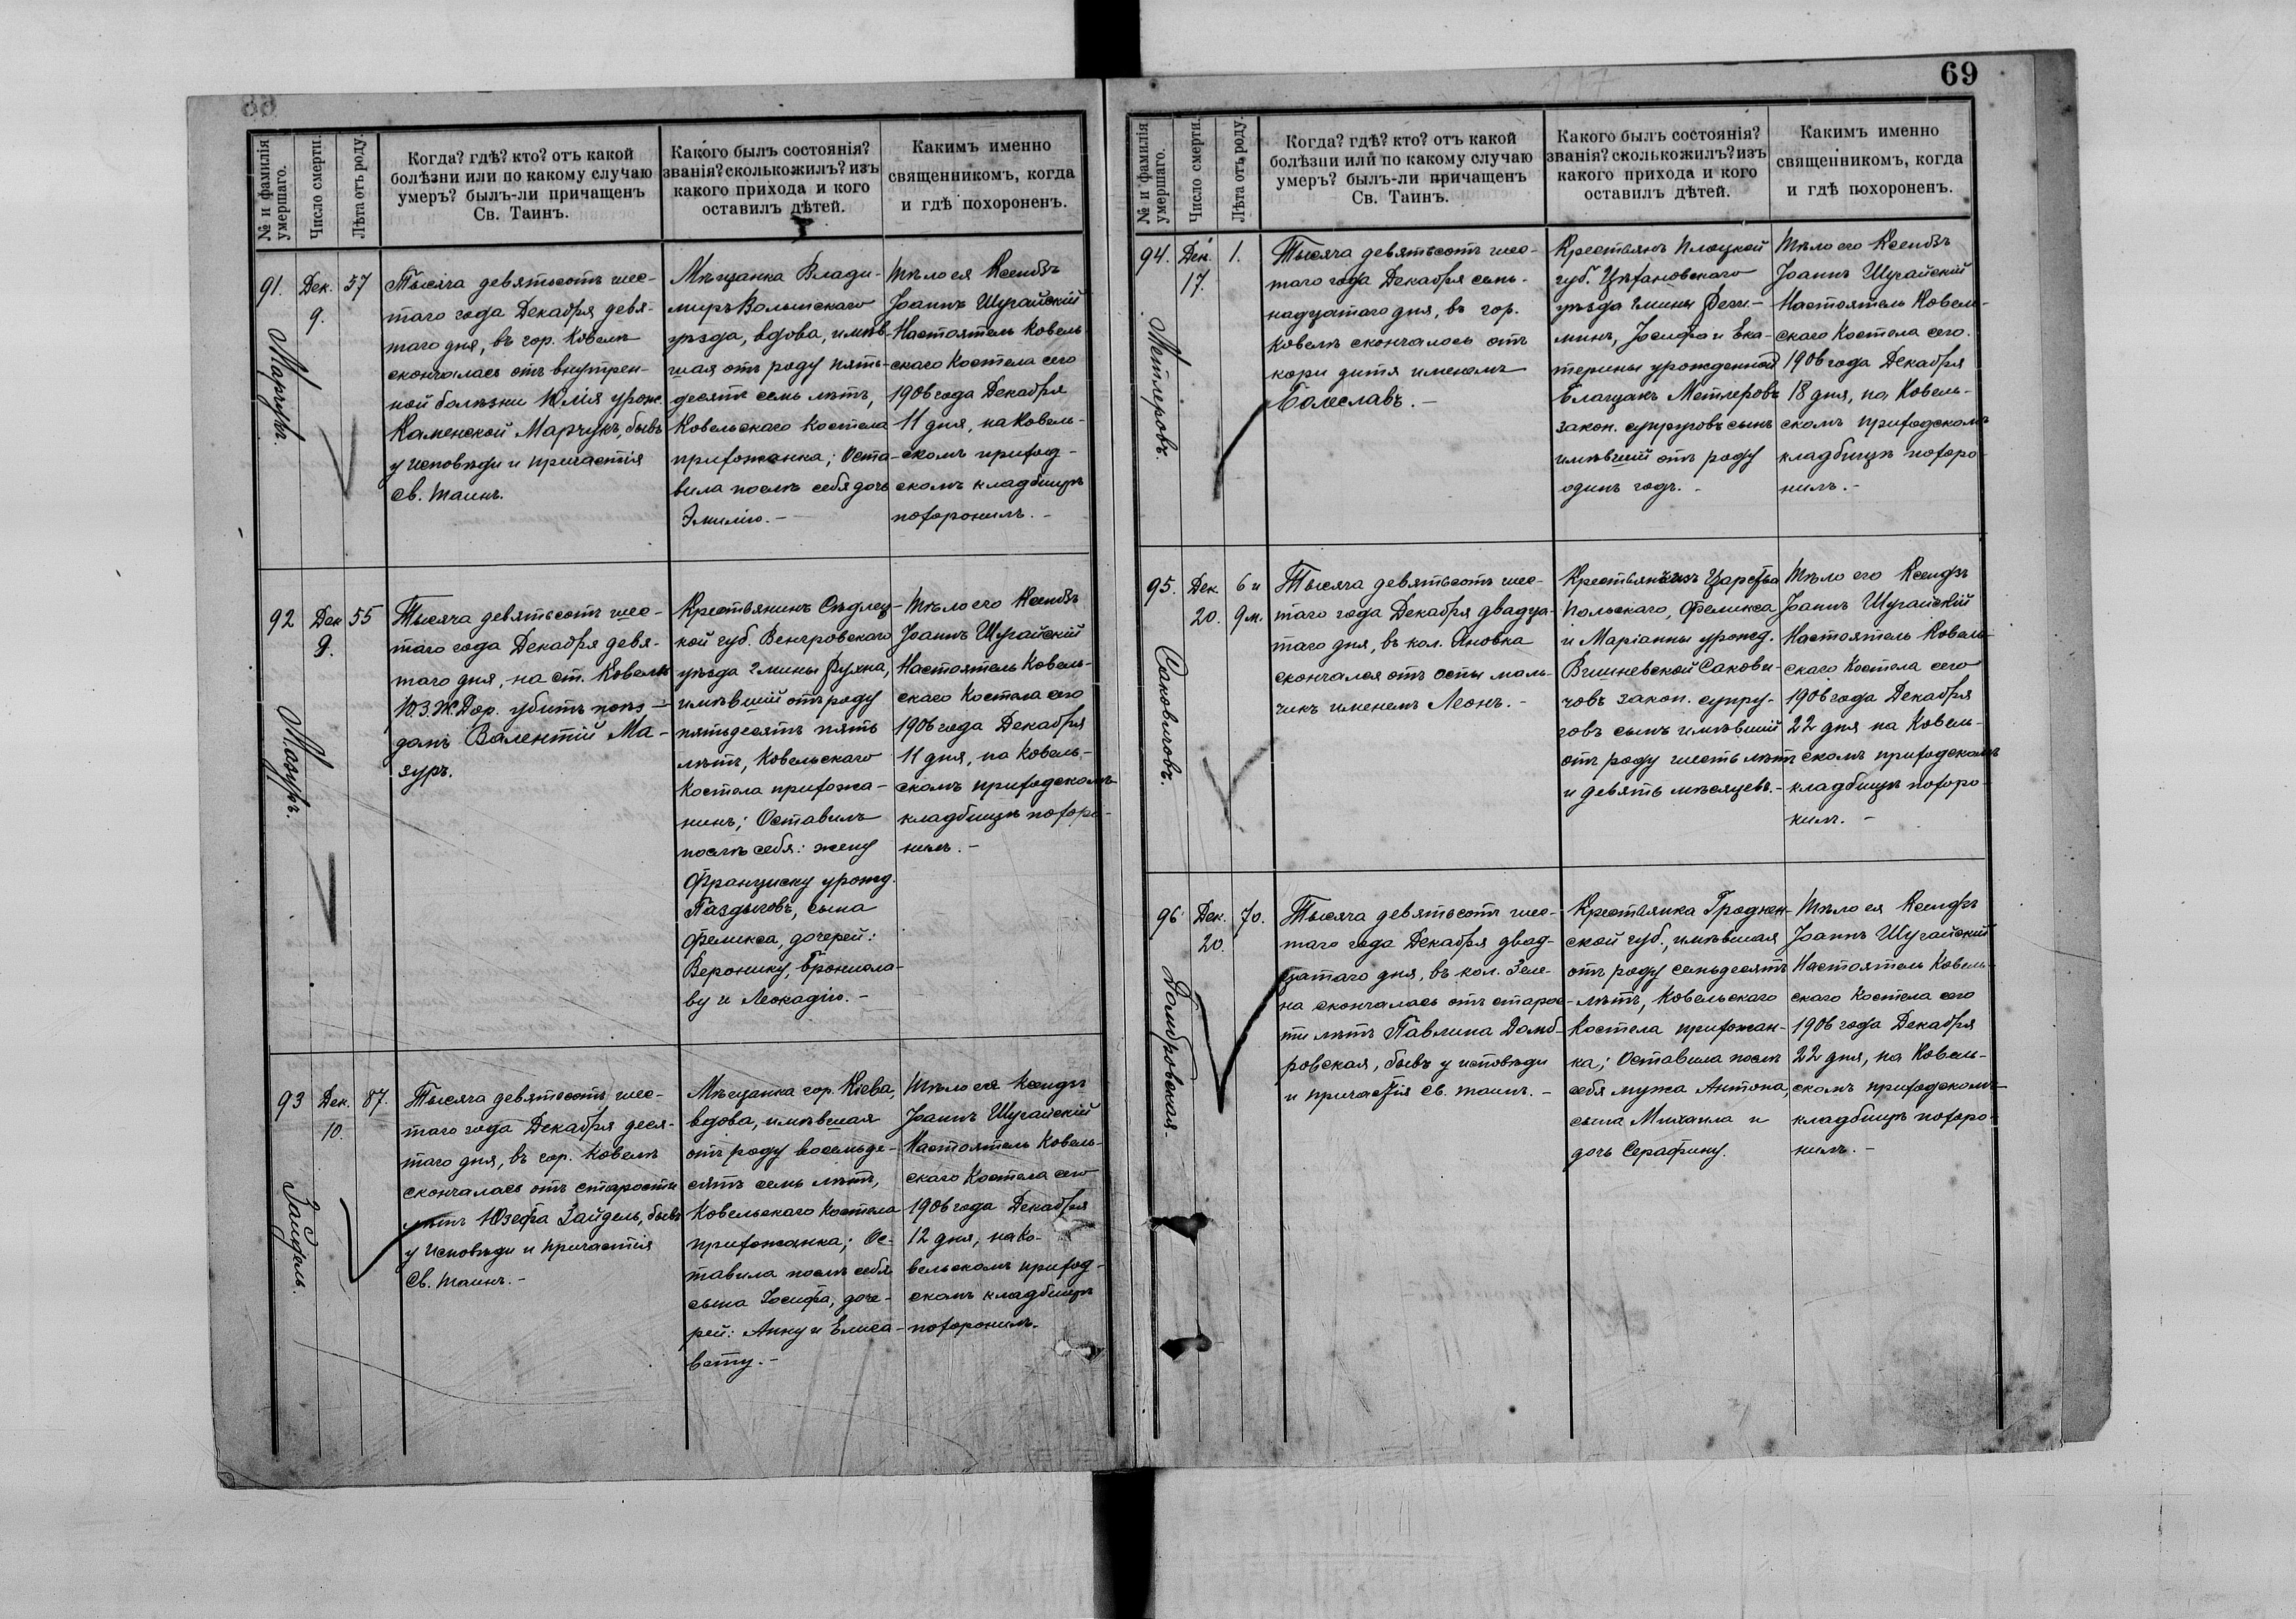 69
№ и фамилія умершаго.
Число смерти.
Лѣта отъ роду.
Когда? гдѣ? кто? отъ какой
болѣзни или по какому случаю
умеръ? былъ-ли причащенъ
Св. Таинъ.
Какого былъ состоянія?
званія? сколько жилъ? изъ
какого прихода и кого
оставилъ дѣтей.
Какимъ именно
священникомъ, когда
и гдѣ похороненъ.
91.
Марчукъ.
Дек.
9.
57
Тысяча девятьсотъ шес-
таго года Декабря девя-
таго дня, въ гор. Ковелѣ
скончалась отъ внутрен-
ной болѣзни Юлія урож.
Каменской Марчукъ, бывъ
у исповѣди и причастія
Св. Таинъ.
Мѣщанка Влади-
миръ Волынскаго
уѣзда, вдова, имѣв-
шая отъ роду пять-
десятъ семь лѣтъ,
Ковельскаго Костела
прихожанка; Оста-
вила послѣ себя дочь
Эмилію. -
Тѣло ея Ксендзъ
Іоаннъ Шугайскій
Настоятель Ковель
скаго Костела сего
1906 года Декабря
11 дня, на Ковель-
скомъ приход-
скомъ кладбищѣ
похоронилъ. -
92
Мазуръ.
Дек
9.
55
Тысяча девятьсотъ шес-
таго года Декабря девя-
таго дня, на ст. Ковель
Ю.З.Ж.Дор. убитъ поѣз-
домъ Валентій Ма-
зуръ.
Крестьянинъ Сѣдлец-
кой губ. Венгровскаго
уѣзда гмины Рухна,
имѣвшій отъ роду
пятьдесятъ пять
лѣтъ, Ковельскаго
Костела прихожа-
нинъ; Оставилъ
послѣ себя: жену
Франциску урожд.
Паздыговъ, сына
Феликса, дочерей:
Веронику, Бронисла-
ву и Леокадію. -
Тѣло его Ксендзъ
Іоаннъ Шугайскій
Настоятель Ковель-
скаго Костела сего
1906 года Декабря
11 дня, на Ковель-
скомъ приходскомъ
кладбищѣ похоро-
нилъ. -
93
Зайдель.
Дек.
10.
87.
Тысяча девятьсотъ шес-
таго года Декабря деся-
таго дня, въ гор. Ковелѣ
скончалась отъ старости
лѣтъ Юзефа Зайдель, бывъ
у исповѣди и причастія
Св. Таинъ. -
Мѣщанка гор. Кіева,
вдова, имѣвшая
отъ роду восемьде-
сятъ семь лѣтъ,
Ковельскаго Костела
прихожанка; Ос-
тавила послѣ себя
сына Іосифа, доче-
рей: Анну и Елиса-
вету. -
Тѣло ея Ксендзъ
Іоаннъ Шугайскій
Настоятель Ковель-
скаго Костела сего
1906 года Декабря
12 дня, на Ко-
вельскомъ приход-
скомъ кладбищѣ
похоронилъ.
№ и фамилія умершаго.
Число смерти.
Лѣта отъ роду.
Когда? гдѣ? кто? отъ какой
болѣзни или по какому случаю
умеръ? былъ-ли причащенъ
Св. Таинъ.
Какого былъ состоянія?
званія? сколько жилъ? изъ
какого прихода и кого
оставилъ дѣтей.
Какимъ именно
священникомъ, когда
и гдѣ похороненъ.
94.
Метлеровъ.
Дек.
17.
1.
Тысяча девятьсотъ шес-
таго года Декабря семь-
надцатаго дня, въ гор.
Ковелѣ скончалось отъ
кори дитя именемъ
Болеславъ. -
Крестьянъ Плоцкой
губ. Цѣхановскаго
уѣзда гмины
Іосифа и Ека-
терины урожденной
Благцакъ Метлеровъ
закон. супруговъ сынъ
имѣвшій отъ роду
одинъ годъ. -
Тѣло его Ксендзъ
Іоаннъ Шугайскій
Настоятель Ковель-
скаго Костела сего
1906 года Декабря
18 дня, на Ковель-
скомъ приходскомъ
кладбищѣ похоро-
нилъ. -
95.
Саковичовъ.
Дек.
20.
6 и
9 м.
Тысяча девятьсотъ шес-
таго года Декабря двадца-
таго дня, въ кол. Яновка
скончался отъ оспы маль-
чикъ именемъ Леонъ. -
Крестьянъ изъ Царства
Польскаго, Феликса
и Маріанны урожд.
Вишневской Сакови-
човъ закон. супру-
говъ сынъ имѣвшій
отъ роду шесть лѣтъ
и девять мѣсяцевъ. -
Тѣло его Ксендзъ
Іоаннъ Шугайскій
Настоятель Ковель-
скаго Костела сего
1906 года Декабря
22 дня на Ковель-
скомъ приходскомъ
кладбищѣ похоро-
нилъ. -
96
Домбровская.
Дек.
20.
70.
Тысяча девятьсотъ шес-
таго года Декабря двад-
цатаго дня, въ кол. Зеле-
на скончалась отъ старос-
ти лѣтъ Павлина Домб-
ровская, бывъ у исповѣди
и причастія Св. Таинъ. -
Крестьянка Гроднен-
ской губ., имѣвшая
отъ роду семьдесятъ
лѣтъ, Ковельскаго
Костела прихожан-
ка; Оставила послѣ
себя мужа Антона,
сына Михаила и
дочь Серафину.
Тѣло ея Ксендзъ
Іоаннъ Шугайскій
Настоятель Ковель-
скаго Костела сего
1906 года Декабря
22 дня, на Ковель-
скомъ приходскомъ
кладбищѣ похоро-
нилъ. -